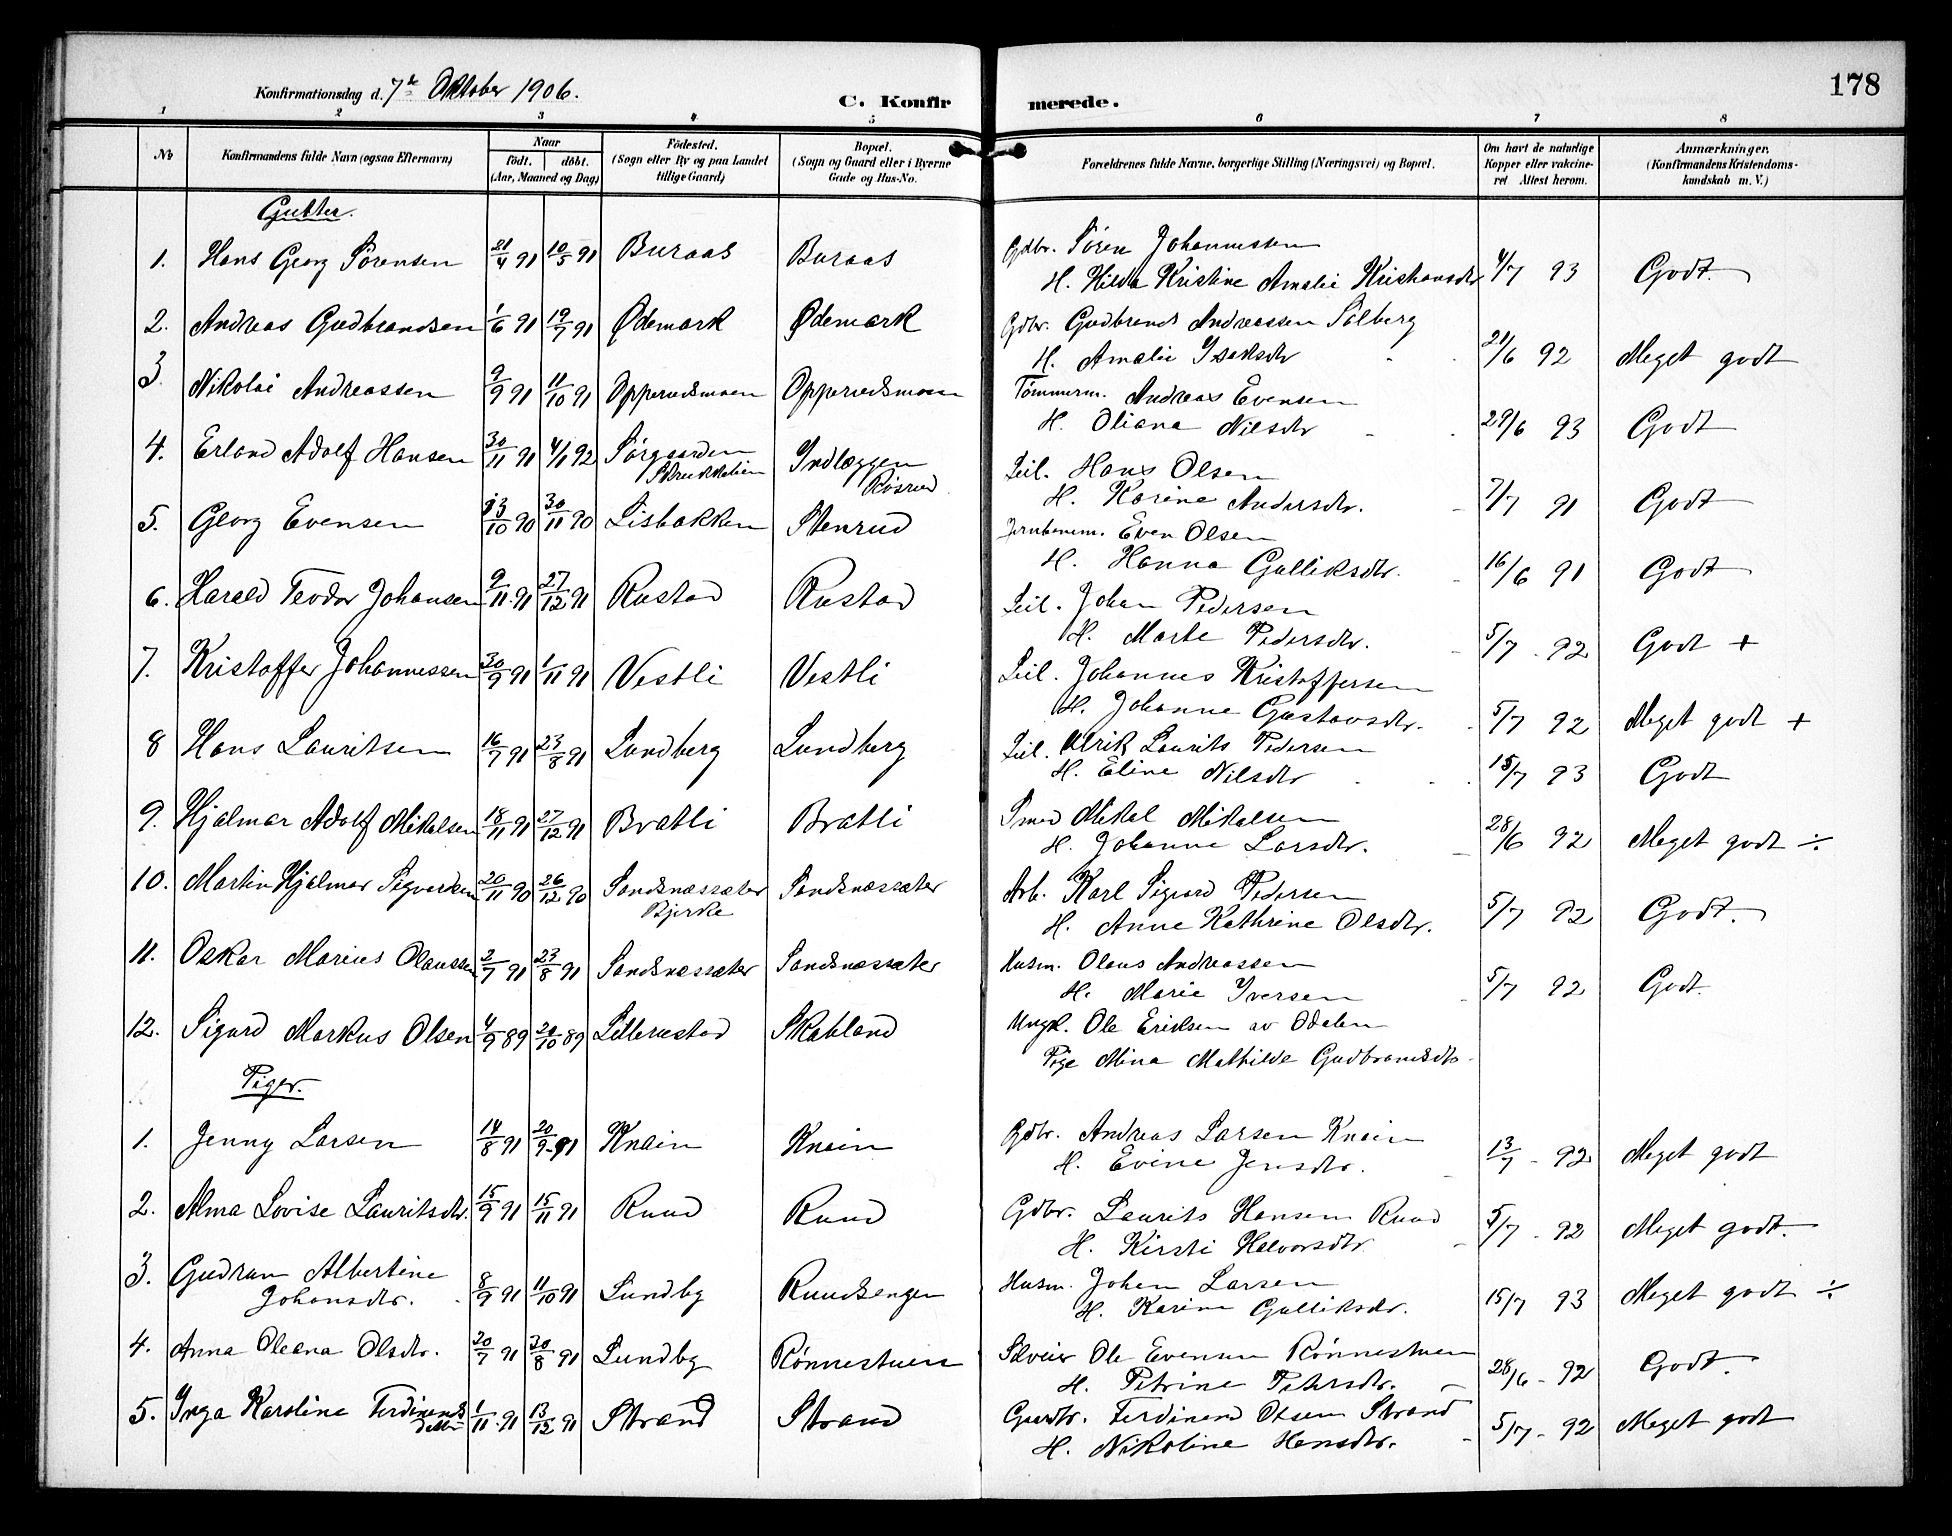 178
Konfirmationsdag d. 7de Oktober 1906.
C. Konfirmerede.
1 2 3 4 5 6 7 8
No
Konfirmandens fulde Navn (ogsaa Efternavn)
Naar
födt. döbt.
(Aar, Maaned og Dag)
Födested.
(Sogn eller By og paa Landet
tillige Gaard)
Bopæl.
(Sogn og Gaard eller i Byerne
Gade og Hus-No.
Forældrenes fulde Navne, borgerlige Stilling (Næringsvei) og Bopæl.
Om havt de naturlige
Kopper eller vakcine-
ret Attest herom.
Anmærkninger,
(Konfirmandens Kristendoms-
kundskab m. V.)
Gutter.
1. Hans Georg Sørensen 21/4 91 10/5 91 Buraas Buraas Gdbr. Søren Johannessen
H. Hilda Kristine Amalie Kristiansdtr 4/7 93 Godt.
2. Andreas Gudbrandsen 1/6 91 19/7 91 Ødemark Ødemark Gdbr. Gudbrand Andreassen Solberg
H. Amalie Isaksdtr 21/6 92 Meget godt
3. Nikolai Andreassen 9/9 91 11/10 91 Opperudsmoen Opperudsmoen Tømmerm. Andreas Evensen
H. Oliana Nilsdtr 29/6 93 Godt
4. Erland Adolf Hansen 30/11 91 4/1 92 Sørgaarden Indlæggen Leil. Hans Olsen
Skrukkelien Røsrud
H. Karine Andersdtr. 7/7 91 Godt
5. Georg Evensen 13/10 90 30/11 90 Lisbakken Stenrud Jernbanem. Even Olsen
H. Hanna Gulliksdtr. 16/6 91 Godt
6. Harald Teodor Johansen 9/11 91 27/12 91 Rustad Rustad Leil. Johan Pedersen
H. Marte Pedersdtr. 5/7 - 92 Godt +
7. Kristoffer Johannessen 30/9 91 1/11 91 Vestli Vestli Leil. Johannes Kristoffersen
H. Johanne Gustavsdtr. 5/7 92 Meget godt +
8 Hans Lauritsen 16/7 91 23/8 91 Lundberg Lundberg Leil. Ulrik Laurits Pedersen
H. Eline Nilsdtr 15/7 93 Godt
9. Hjalmar Adolf Mikalsen 18/11 91 27/12 91 Bratli Bratli Smed Mikal Mikalsen
H. Johanne Larsdtr. 28/6 92 Meget godt ÷
10. Martin Hjalmar Sigvardsen 20/11 90 26/12 90 Sandsnæssæter Sandsnæssæter Arb. Karl Sigvard Pedersen
Bjerke
H. Anne Kathrine Olsdtr. 5/7 92 Godt.
11. Oskar Marius Olaussen 2/7 91 23/8 91 Sandsnæssæter Sandsnæssæter Husm. Olaus Andreassen
H. Marie Iversen 5/7 92 Godt.
12. Sigurd Markus Olsen 4/9 89 20/10 89 Lillerustad Skabland Ungk. Ole Eriksen av Odalen
Pige Mina Mathilde Gudbrandsdtr
Piger.
1. Jenny Larsen 14/8 91 20/9 91 Knain Knain Gdbr. Andreas Larsen Knain
H. Evine Jensdtr. 13/7 - 92 Meget godt
2. Alma Lovise Lauritsdtr. 15/9 91 15/11 91 Ruud Ruud Gdbr. Laurits Hansen Ruud
H. Kirsti Halvorsdtr. 5/7 - 92 Meget godt.
3. Gudrun Albertine
Johansdtr. 8/9 91 11/10 91 Lundby Ruudsengen Husm. Johan Larsen
H. Karine Gulliksdtr. 15/7 93 Meget godt ÷
4. Anna Oleana Olsdtr. 20/7 91 30/8 91 Lundby Rønnestuen Skreier Ole Evensen Rønnestuen
H. Petrine Petersdtr. 28/6 - 92 Godt.
5. Inga Karoline Ferdinands
datter 1/11 91 13/12 91 Strand Strand Gaardbr. Ferdinand Olsen Strand
H. Nikoline Hansdtr. 5/7 - 92 Meget godt